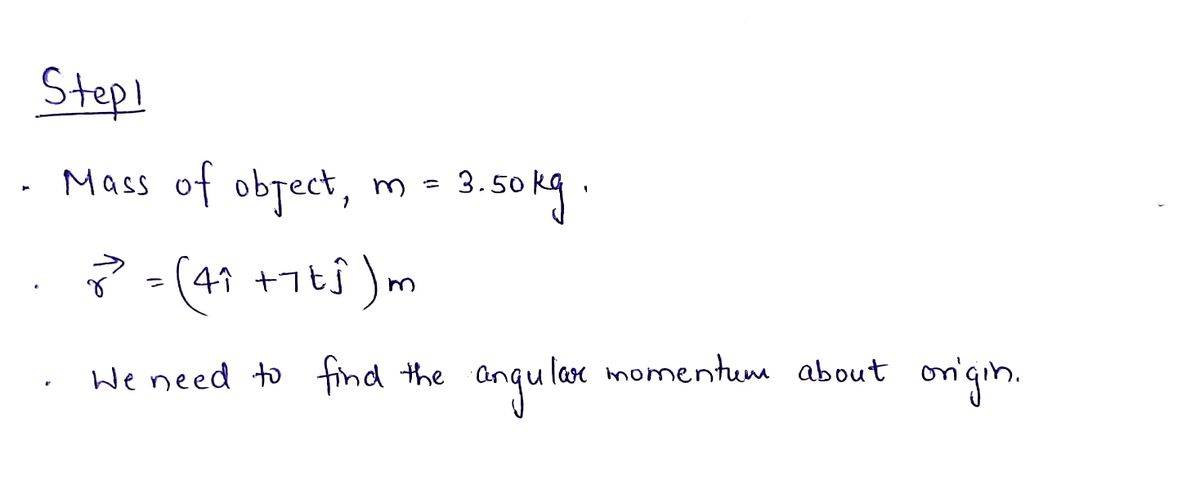 Step1
· Mass of object, m = 3.50 kg.
· r⃗ = (4î + 7tĵ) m
· We need to find the angular momentum about origin.